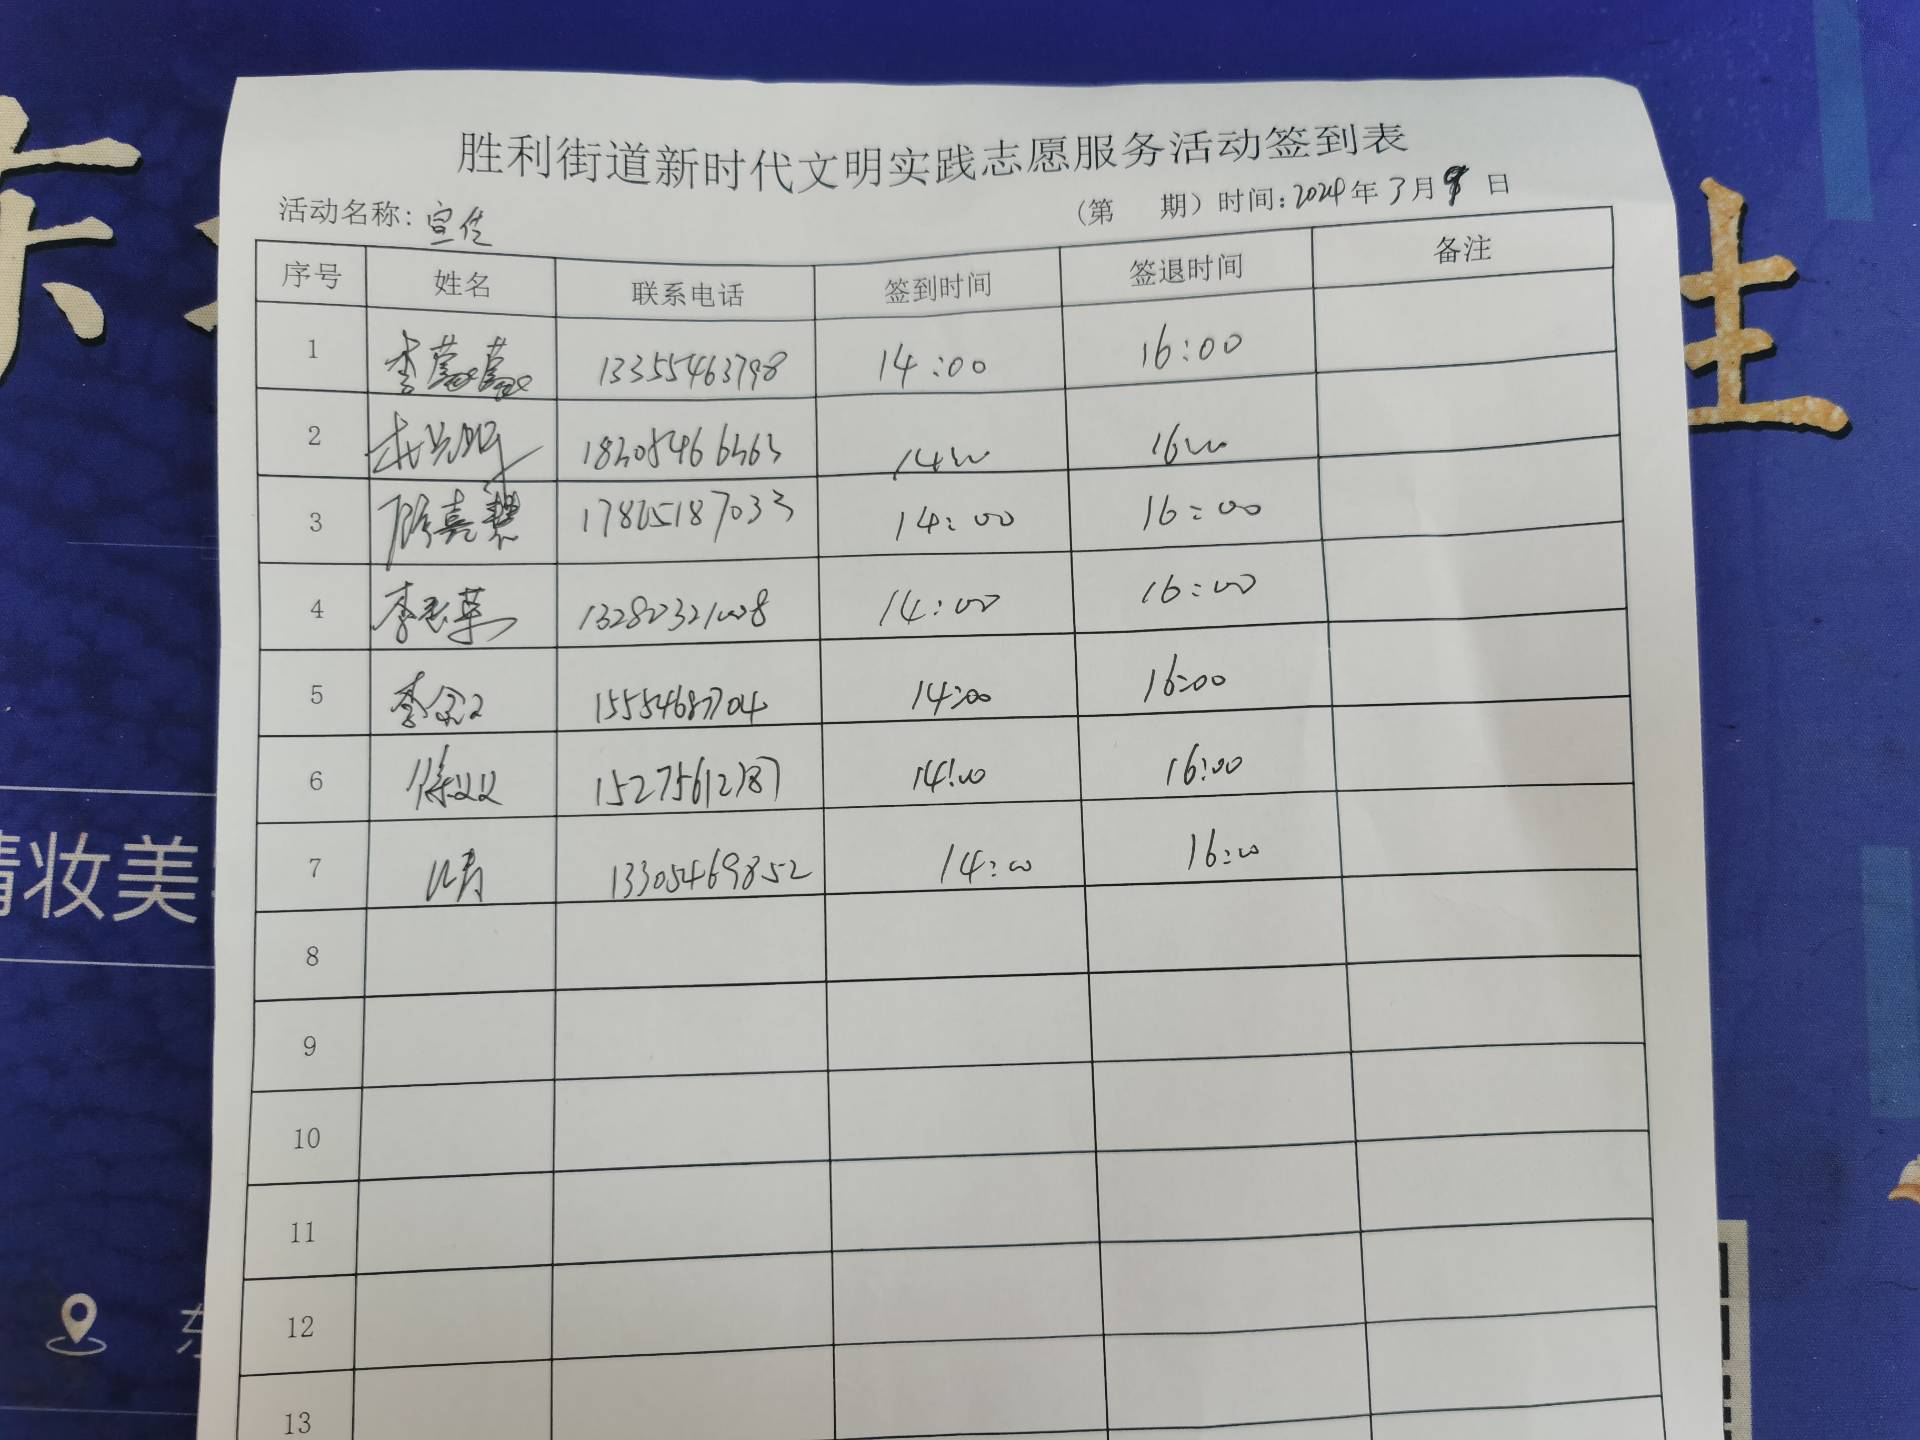 胜利街道新时代文明实践志愿服务活动签到表
活动名称：宣传 （第 期）时间：2024年3月 日
序号 姓名 联系电话 签到时间 签退时间 备注
1 李蒙蒙 13355463798 14:00 16:00
2 18305466363 1400 1600
3 17865187033 14:00 16:00
4 李 13280321008 14:00 16:00
5 李 15554687704 14:00 16:00
6 徐双双 15275612787 14:00 16:00
7 13305469852 14:00 16:00
8
9
10
11
12
13
妆美
生